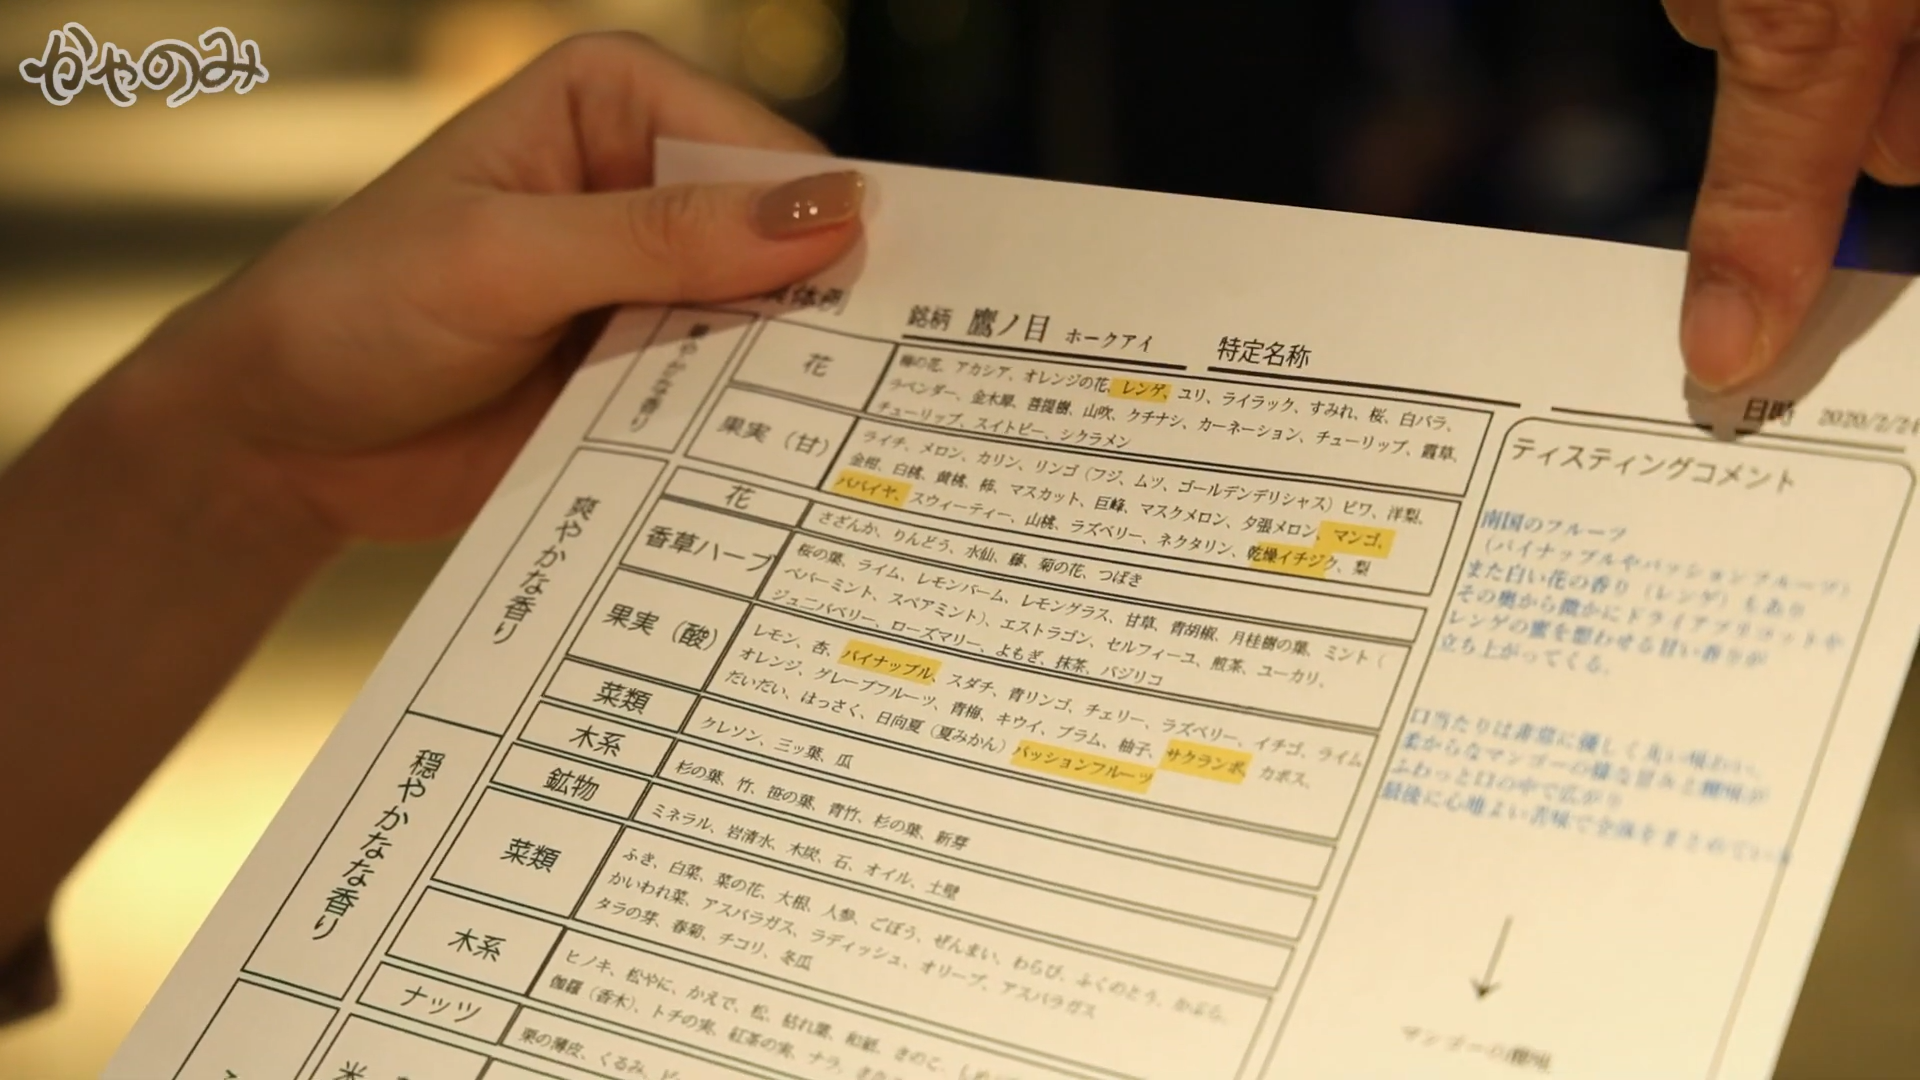 かやのみ
体例
銘柄 鷹ノ目 ホークアイ 特定名称
日時 2020/2/2
やかな香り
花
梅の花、アカシア、オレンジの花、レンゲ、ユリ、ライラック、すみれ、桜、白バラ、
ラベンダー、金木犀、菩提樹、山吹、クチナシ、カーネーション、チューリップ、霞草、
チューリップ、スイトピー、シクラメン
果実（甘）
ライチ、メロン、カリン、リンゴ（フジ、ムツ、ゴールデンデリシャス）ビワ、洋梨、
金柑、白桃、黄桃、柿、マスカット、巨峰、マスクメロン、夕張メロン、マンゴ、
パパイヤ、スウィーティー、山桃、ラズベリー、ネクタリン、乾燥イチジク、梨
爽やかな香り
花
さざんか、りんどう、水仙、藤、菊の花、つばき
香草ハーブ
桜の葉、ライム、レモンバーム、レモングラス、甘草、青胡椒、月桂樹の葉、ミント（
ペパーミント、スペアミント）、エストラゴン、セルフィーユ、煎茶、ユーカリ、
ジュニパベリー、ローズマリー、よもぎ、抹茶、バジリコ
果実（酸）
レモン、杏、パイナップル、スダチ、青リンゴ、チェリー、ラズベリー、イチゴ、ライム
オレンジ、グレープフルーツ、青梅、キウイ、プラム、柚子、サクランボ、カボス、
だいだい、はっさく、日向夏（夏みかん）パッションフルーツ
菜類
クレソン、三ッ葉、瓜
木系
杉の葉、竹、笹の葉、青竹、杉の葉、新芽
穏やかなな香り
鉱物
ミネラル、岩清水、木炭、石、オイル、土壁
菜類
ふき、白菜、菜の花、大根、人参、ごぼう、ぜんまい、わらび、ふくのとう、かぶら、
かいわれ菜、アスパラガス、ラディッシュ、オリーブ、アスパラガス
タラの芽、春菊、チコリ、冬瓜
木系
ヒノキ、松やに、かえで、松、枯れ葉、和紙、きのこ、しめ
伽羅（香木）、トチの実、紅茶の実、ナラ、
ナッツ
栗の薄皮、くるみ、ピ
米
ティスティングコメント
南国のフルーツ
（パイナップルやパッションフルーツ）
また白い花の香り（レンゲ）もあり
その奥から微かにドライアプリコットや
レンゲの蜜を想わせる甘い香りが
立ち上がってくる。
口当たりは非常に優しく丸い味わい、
柔からなマンゴーの様な甘みと酸味が
ふわっと口の中で広がり
最後に心地よい苦味で全体をまとめている
マンゴーの酸味